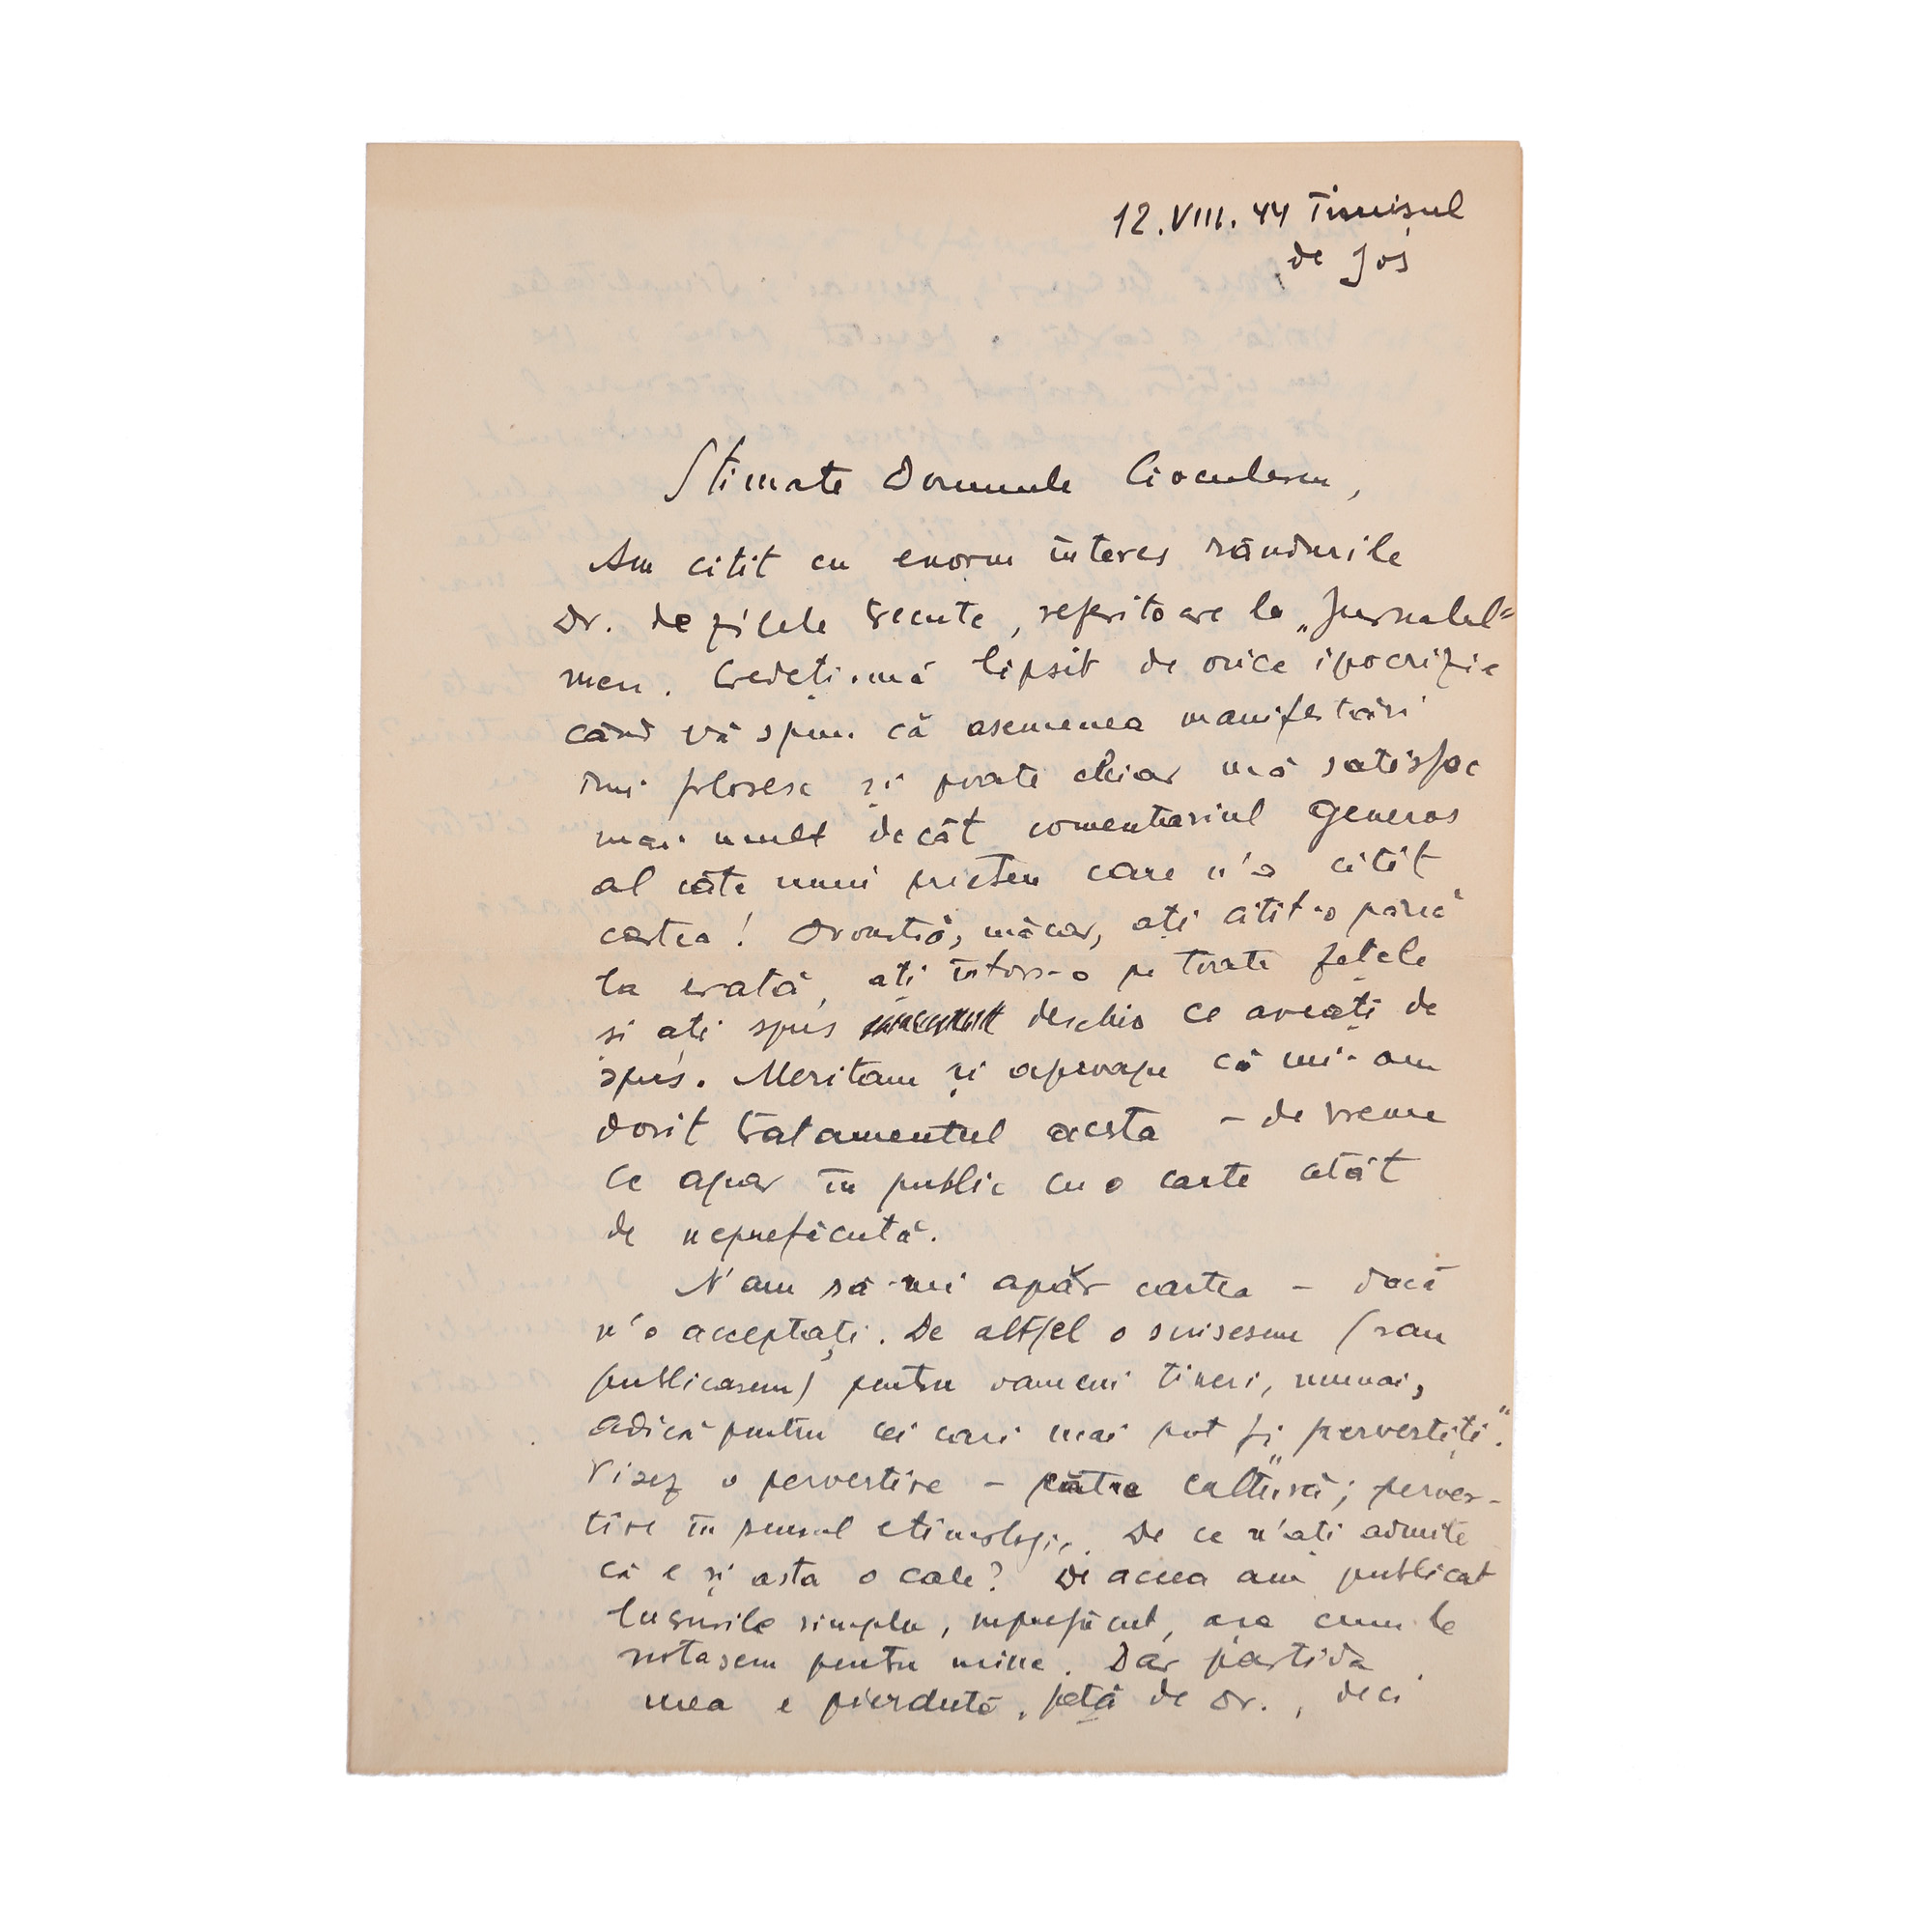 12.VIII.44 Timișul
de Jos
Stimate Domnule Cioculescu,
Am citit cu enorm interes rândurile
Dv. de zilele trecute, referitoare la „Jurnalul"
meu. Credeți-mă lipsit de orice ipocrizie
când vă spun că asemenea manifestări
îmi folosesc și poate chiar mă satisfac
mai mult decât comentariul generos
al câte unui prieten care n'a citit
cartea! Dvoastră, măcar, ați citit-o până
la erată, ați întors-o pe toate fețele
și ați spus deschis ce aveați de
spus. Meritam și aproape că mi-am
dorit tratamentul acesta – de vreme
ce apar în public cu o carte atât
de neprefăcută.
N'am să-mi apăr cartea – dacă
n'o acceptați. De altfel o scrisesem (sau
publicasem) pentru oameni tineri, numai,
adică pentru cei cari mai pot fi „pervertiți".
Visez o pervertire – către cultură; perver-
tire în sensul etimologic. De ce n'ați admite
că e și asta o cale? De aceea am publicat
lucrurile simplu, neprefăcut, așa cum le
notasem pentru mine. Dar partida
mea e pierdută, față de Dv., deci